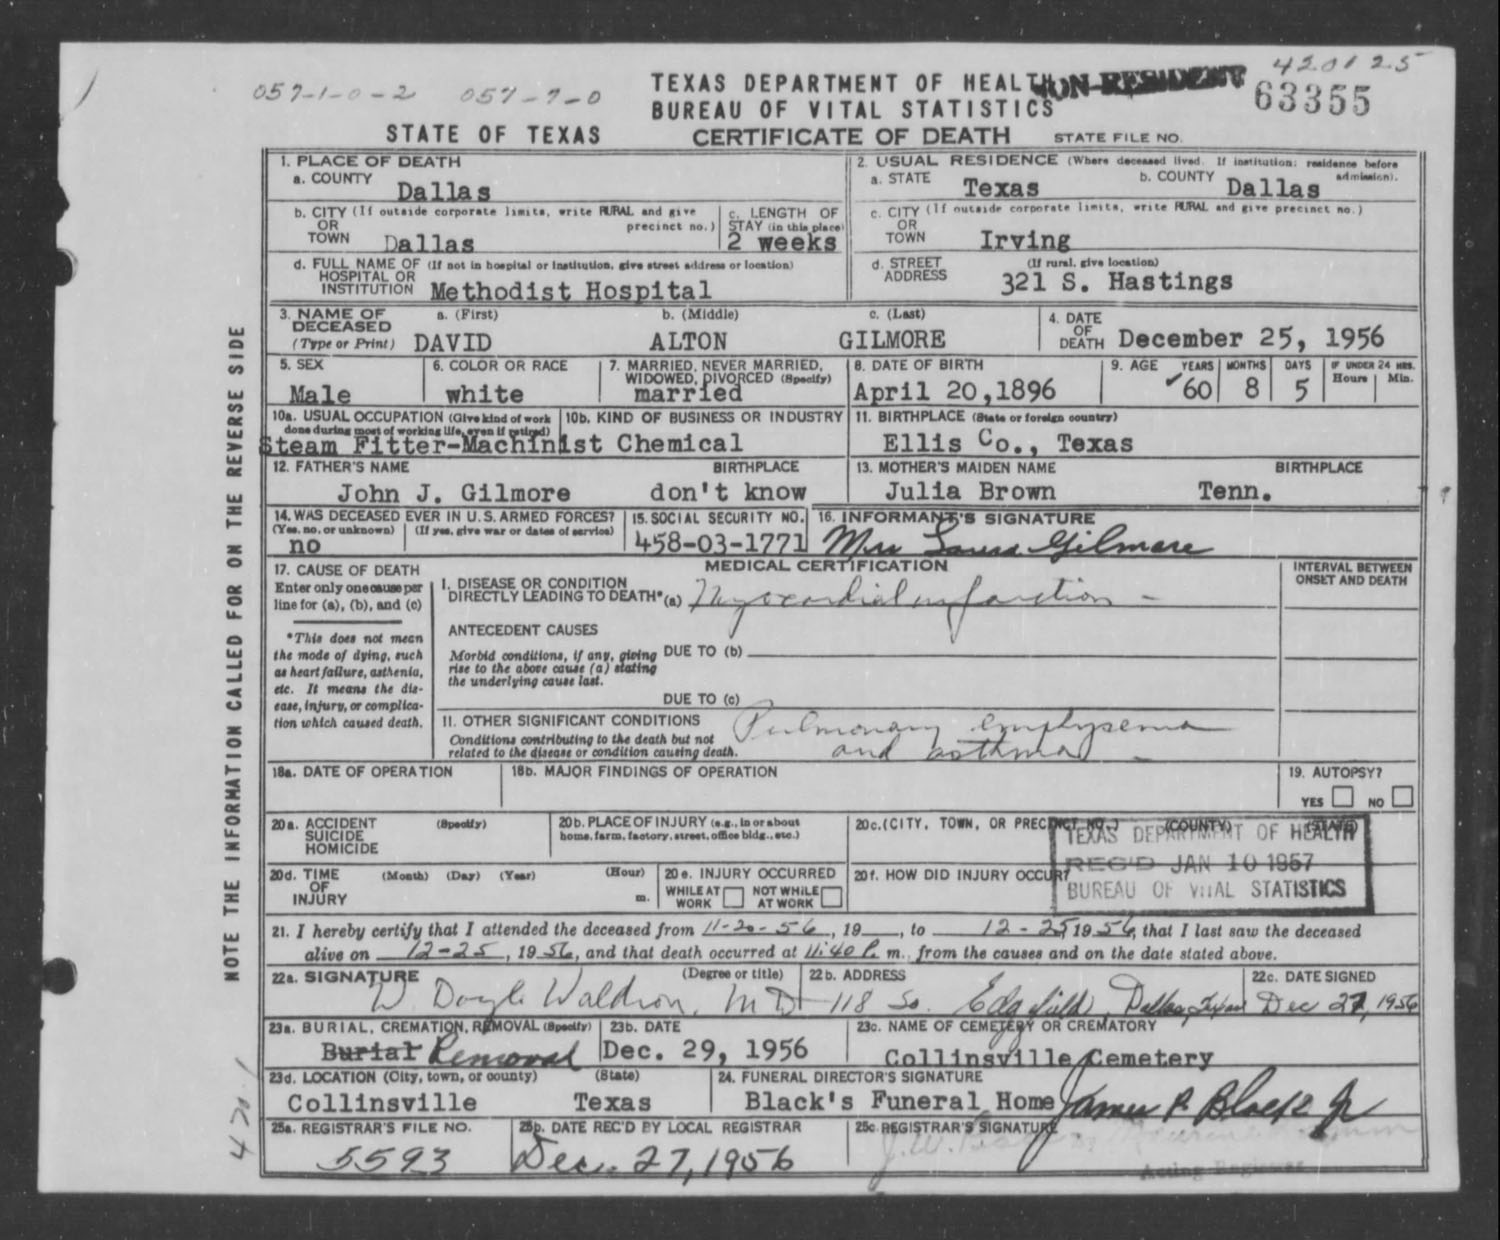 420125
057-1-0-2 057-7-0 TEXAS DEPARTMENT OF HEALTH NON-RESIDENT 63355
BUREAU OF VITAL STATISTICS
STATE OF TEXAS CERTIFICATE OF DEATH STATE FILE NO.
1. PLACE OF DEATH 2. USUAL RESIDENCE (Where deceased lived. If institution: residence before admission).
a. COUNTY Dallas a. STATE Texas b. COUNTY Dallas
b. CITY (If outside corporate limits, write RURAL and give precinct no.) OR TOWN Dallas c. LENGTH OF STAY (in this place) 2 weeks c. CITY (If outside corporate limits, write RURAL and give precinct no.) OR TOWN Irving
d. FULL NAME OF (If not in hospital or institution, give street address or location) HOSPITAL OR INSTITUTION Methodist Hospital d. STREET ADDRESS (If rural, give location) 321 S. Hastings
3. NAME OF DECEASED (Type or Print) a. (First) DAVID b. (Middle) ALTON c. (Last) GILMORE 4. DATE OF DEATH December 25, 1956
5. SEX Male 6. COLOR OR RACE white 7. MARRIED, NEVER MARRIED, WIDOWED, DIVORCED (Specify) married 8. DATE OF BIRTH April 20,1896 9. AGE YEARS 60 MONTHS 8 DAYS 5 IF UNDER 24 HRS. Hours Min.
10a. USUAL OCCUPATION (Give kind of work done during most of working life, even if retired) Steam Fitter-Machinist 10b. KIND OF BUSINESS OR INDUSTRY Chemical 11. BIRTHPLACE (State or foreign country) Ellis Co., Texas
12. FATHER'S NAME John J. Gilmore BIRTHPLACE don't know 13. MOTHER'S MAIDEN NAME Julia Brown BIRTHPLACE Tenn.
14. WAS DECEASED EVER IN U.S. ARMED FORCES? (Yes, no, or unknown) no (If yes, give war or dates of service) 15. SOCIAL SECURITY NO. 458-03-1771 16. INFORMANT'S SIGNATURE Mrs Laura Gilmore
17. CAUSE OF DEATH MEDICAL CERTIFICATION INTERVAL BETWEEN ONSET AND DEATH
Enter only one cause per line for (a), (b), and (c)
I. DISEASE OR CONDITION DIRECTLY LEADING TO DEATH* (a) Myocardial infarction -
*This does not mean the mode of dying, such as heart failure, asthenia, etc. It means the disease, injury, or complication which caused death.
ANTECEDENT CAUSES
Morbid conditions, if any, giving rise to the above cause (a) stating the underlying cause last.
DUE TO (b)
DUE TO (c)
II. OTHER SIGNIFICANT CONDITIONS
Conditions contributing to the death but not related to the disease or condition causing death.
Pulmonary emphysema
and asthma
18a. DATE OF OPERATION 18b. MAJOR FINDINGS OF OPERATION 19. AUTOPSY? YES NO
20a. ACCIDENT SUICIDE HOMICIDE (Specify) 20b. PLACE OF INJURY (e.g., in or about home, farm, factory, street, office bldg., etc.) 20c. (CITY, TOWN, OR PRECINCT NO.) (COUNTY) (STATE)
TEXAS DEPARTMENT OF HEALTH
REC'D JAN 10 1957
BUREAU OF VITAL STATISTICS
20d. TIME OF INJURY (Month) (Day) (Year) (Hour) m. 20e. INJURY OCCURRED WHILE AT WORK NOT WHILE AT WORK 20f. HOW DID INJURY OCCUR?
21. I hereby certify that I attended the deceased from 11-20-56, 19 , to 12-25, 1956, that I last saw the deceased
alive on 12-25, 1956, and that death occurred at 11:40 P. m., from the causes and on the date stated above.
22a. SIGNATURE (Degree or title) W. Doyle Waldron, MD 22b. ADDRESS 118 So. Edgefield, Dallas, Texas 22c. DATE SIGNED Dec 27, 1956
23a. BURIAL, CREMATION, REMOVAL (Specify) Burial Removal 23b. DATE Dec. 29, 1956 23c. NAME OF CEMETERY OR CREMATORY Collinsville Cemetery
23d. LOCATION (City, town, or county) Collinsville (State) Texas 24. FUNERAL DIRECTOR'S SIGNATURE Black's Funeral Home James P. Black Jr
25a. REGISTRAR'S FILE NO. 5593 25b. DATE REC'D BY LOCAL REGISTRAR Dec. 27, 1956 25c. REGISTRAR'S SIGNATURE J.W. Acting Registrar
NOTE THE INFORMATION CALLED FOR ON THE REVERSE SIDE
420.1